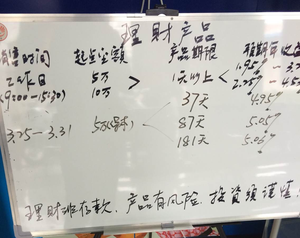 理财产品
销售时间 起点金额 产品期限 预期年收益
工作日 5万 > 1天以上 < 1.95%
(9:00-15:30) 10万
37天 4.95%
3.25-3.31 5万 87天 5.05%
181天 5.06%
理财非存款、产品有风险、投资须谨慎